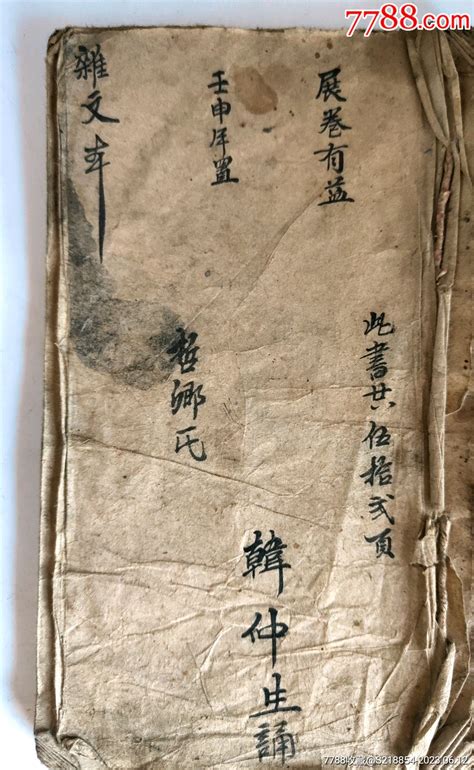 7788.com
展卷有益
此書共伍拾弍頁
壬申年置
韓仲生誦
哲卿氏
雜文本
7788收藏@3218854 2023.06.12